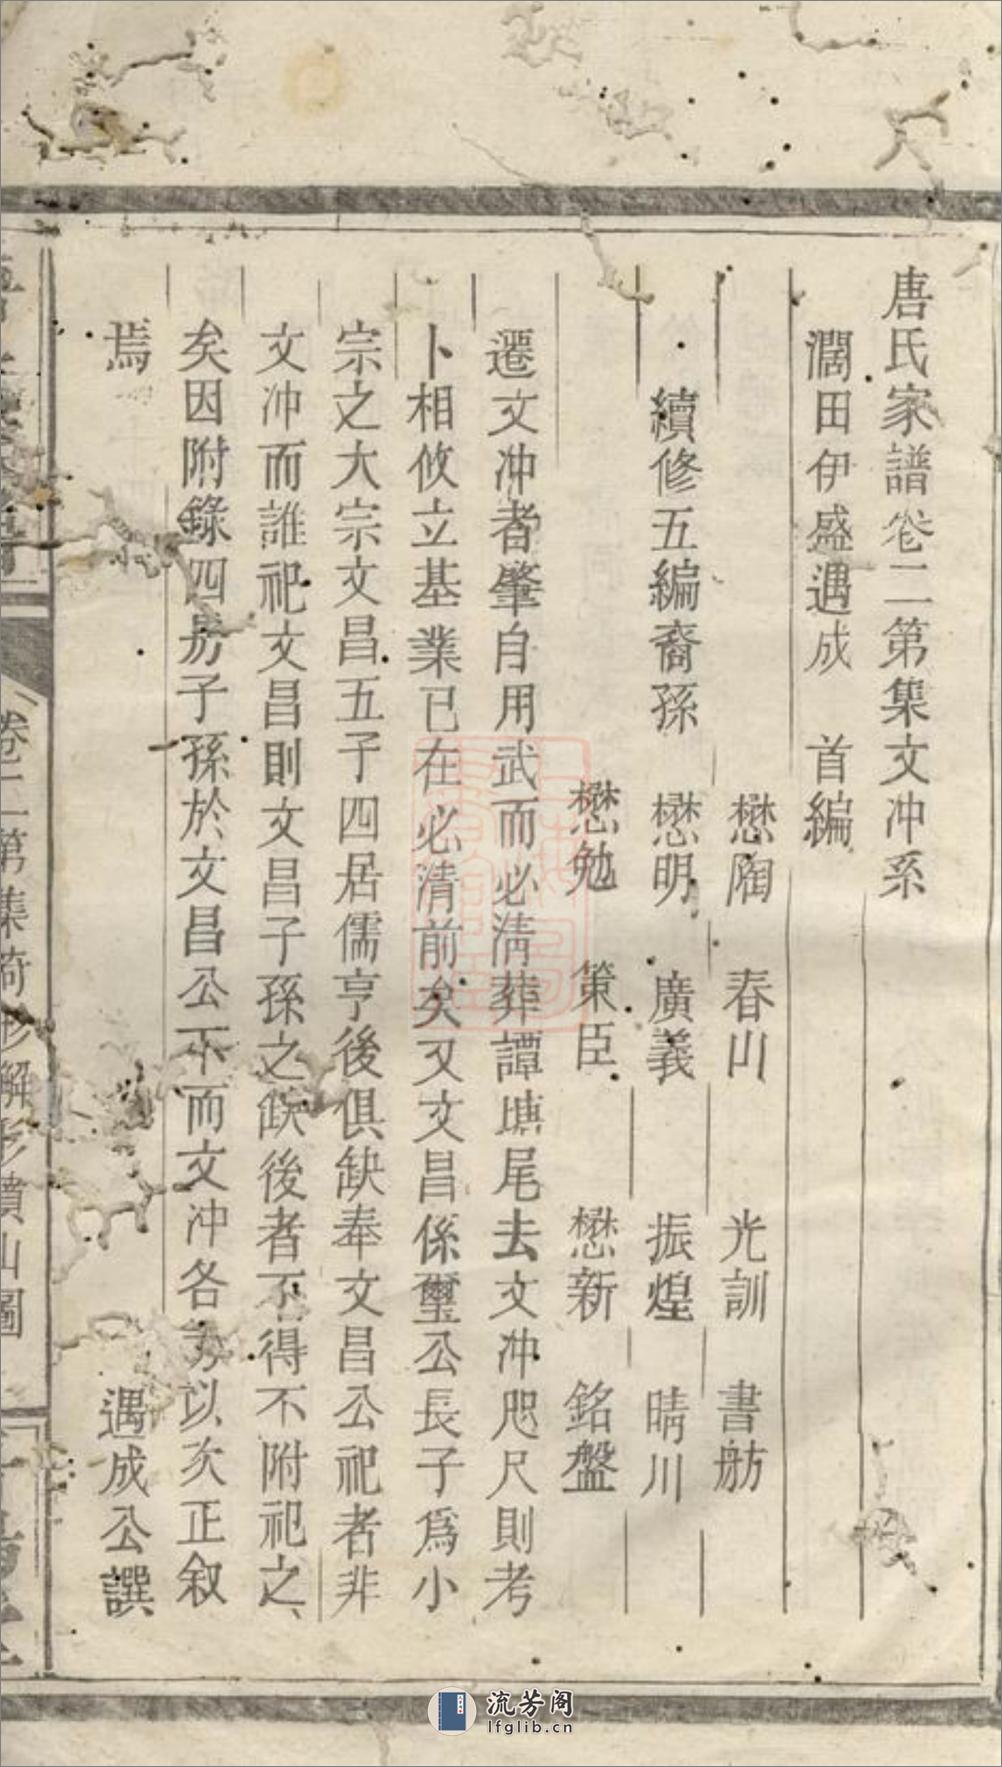 唐氏家譜卷二第集文冲系
濶田伊盛遇成 首編
懋陶 春山 光訓 書舫
續修五編裔孫 懋明 廣義 振煌 晴川
懋勉 策臣 懋新 銘盤
遷文冲者肇自用武而必清葬譚塘尾去文冲咫尺則考
卜相攸立基業已在必清前矣又文昌係璽公長子爲小
宗之大宗文昌五子四居儒亨後俱缺奉文昌公祀者非
文冲而誰祀文昌則文昌子孫之缺後者不得不附祀之
矣因附錄四房子孫於文昌公下而文冲各房以次正叙
焉 遇成公譔
卷二第集
山圖
流芳阁
lfglib.cn